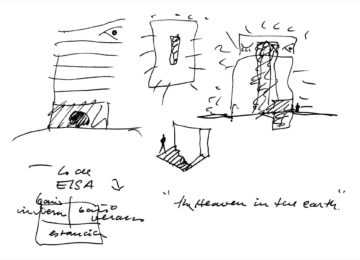 Lo de
EISA
baño
invera
baño
verano
estancia
"In Heaven in the earth"